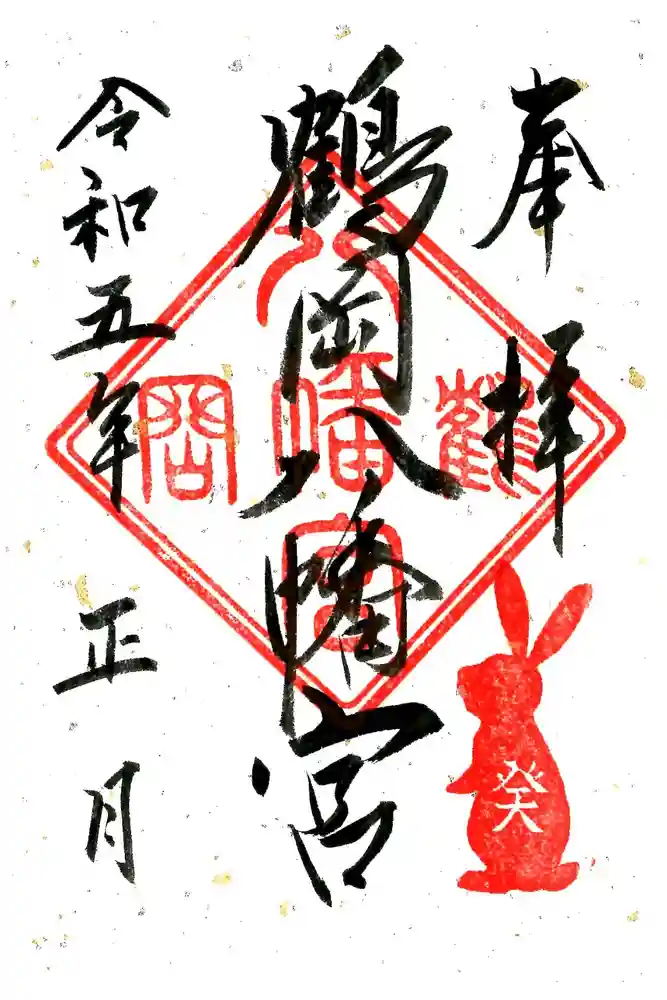 奉拝
鶴岡八幡宮
令和五年正月
鶴
八
幡
宮
岡
癸